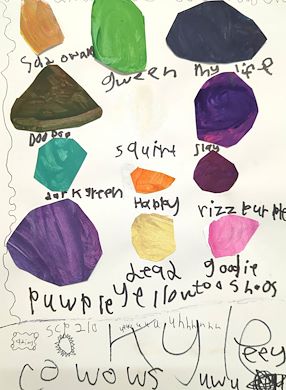 Sda oran
gween
my life
Doo Doo
squirt
slay
dark green
Happy
rizz purple
Dead
goodie
puwple
Yellow
too shoos
scp 210
wwuuuuhhhhhh
Kyle
eey
cowows
uwu